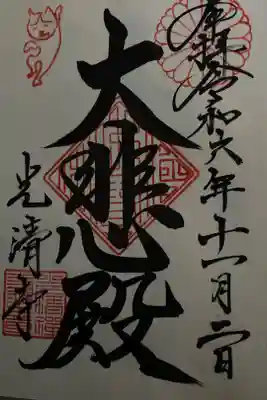 奉拝 令和六年十一月二日
大悲殿
光清寺